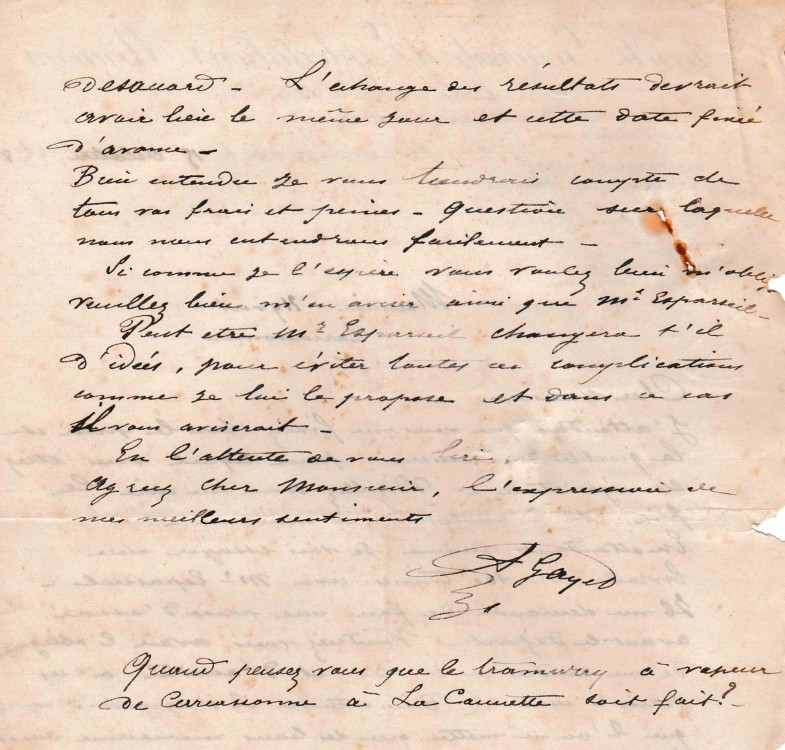 L'échange des résultats devrait
avoir lieu le même jour et cette date fixée
d'avance –
Bien entendu je vous tiendrais compte de
tous vos frais et peines – Question sur laquelle
nous nous entendrons facilement –
Si comme je l'espère vous voulez bien m'oblig
veuillez bien m'en aviser ainsi que Mr Esparseil –
Peut etre Mr Esparseil changera t'il
d'idées, pour éviter toutes ces complications
comme je lui le propose et dans ce cas
il vous aviserait –
En l'attente de vous lire,
Agreez Cher Monsieur, l'expression de
mes meilleurs sentiments
A Gayed
Quand pensez vous que le tramway à vapeur
de Carcassonne à La Caunette soit fait ?